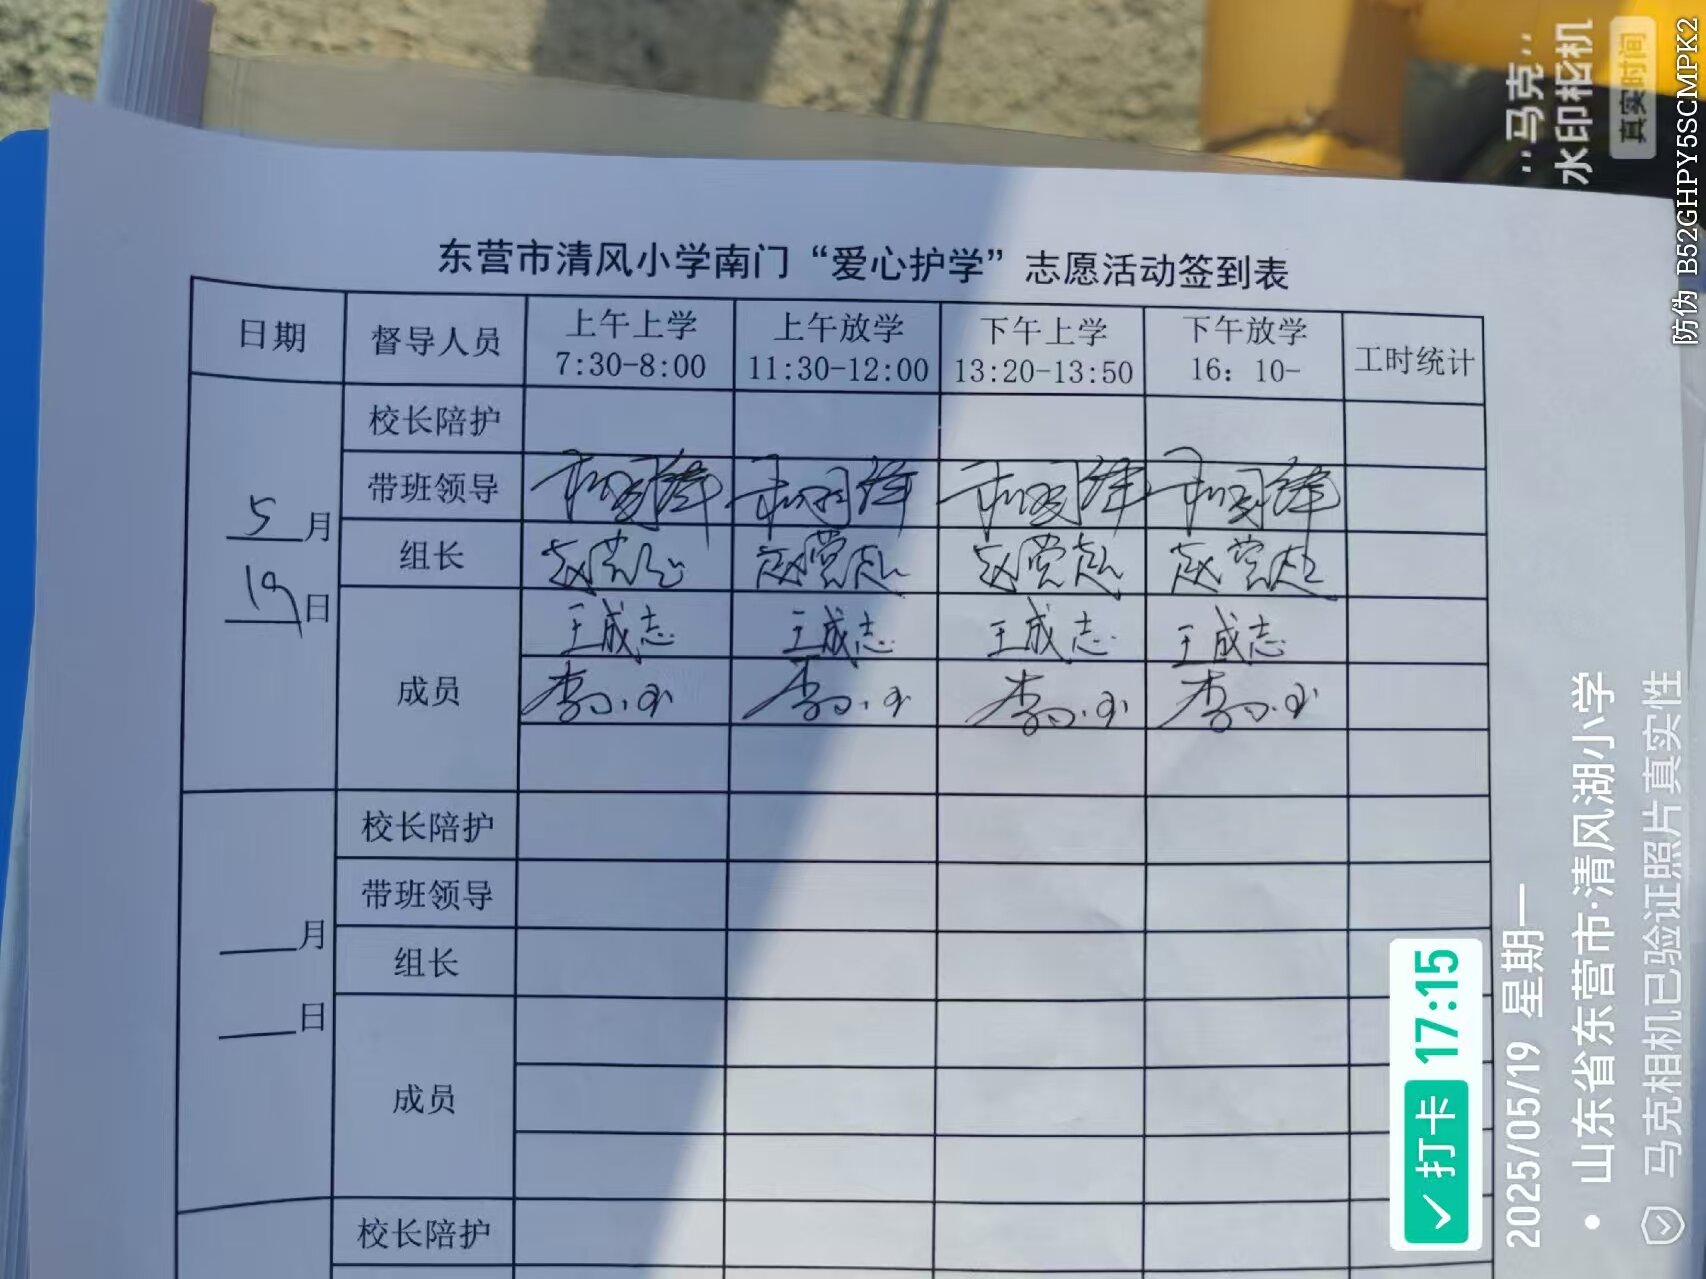 东营市清风小学南门“爱心护学”志愿活动签到表
日期 督导人员 上午上学 7:30-8:00 上午放学 11:30-12:00 下午上学 13:20-13:50 下午放学 16：10- 工时统计
5月
19日
校长陪护
带班领导
组长
成员 王成志 王成志 王成志 王成志
月
日
校长陪护
带班领导
组长
成员
校长陪护
马克
水印相机
真实时间
防伪 B52GHPY5SCMPK2
打卡 17:15
2025/05/19 星期一
山东省东营市·清风湖小学
马克相机已验证照片真实性